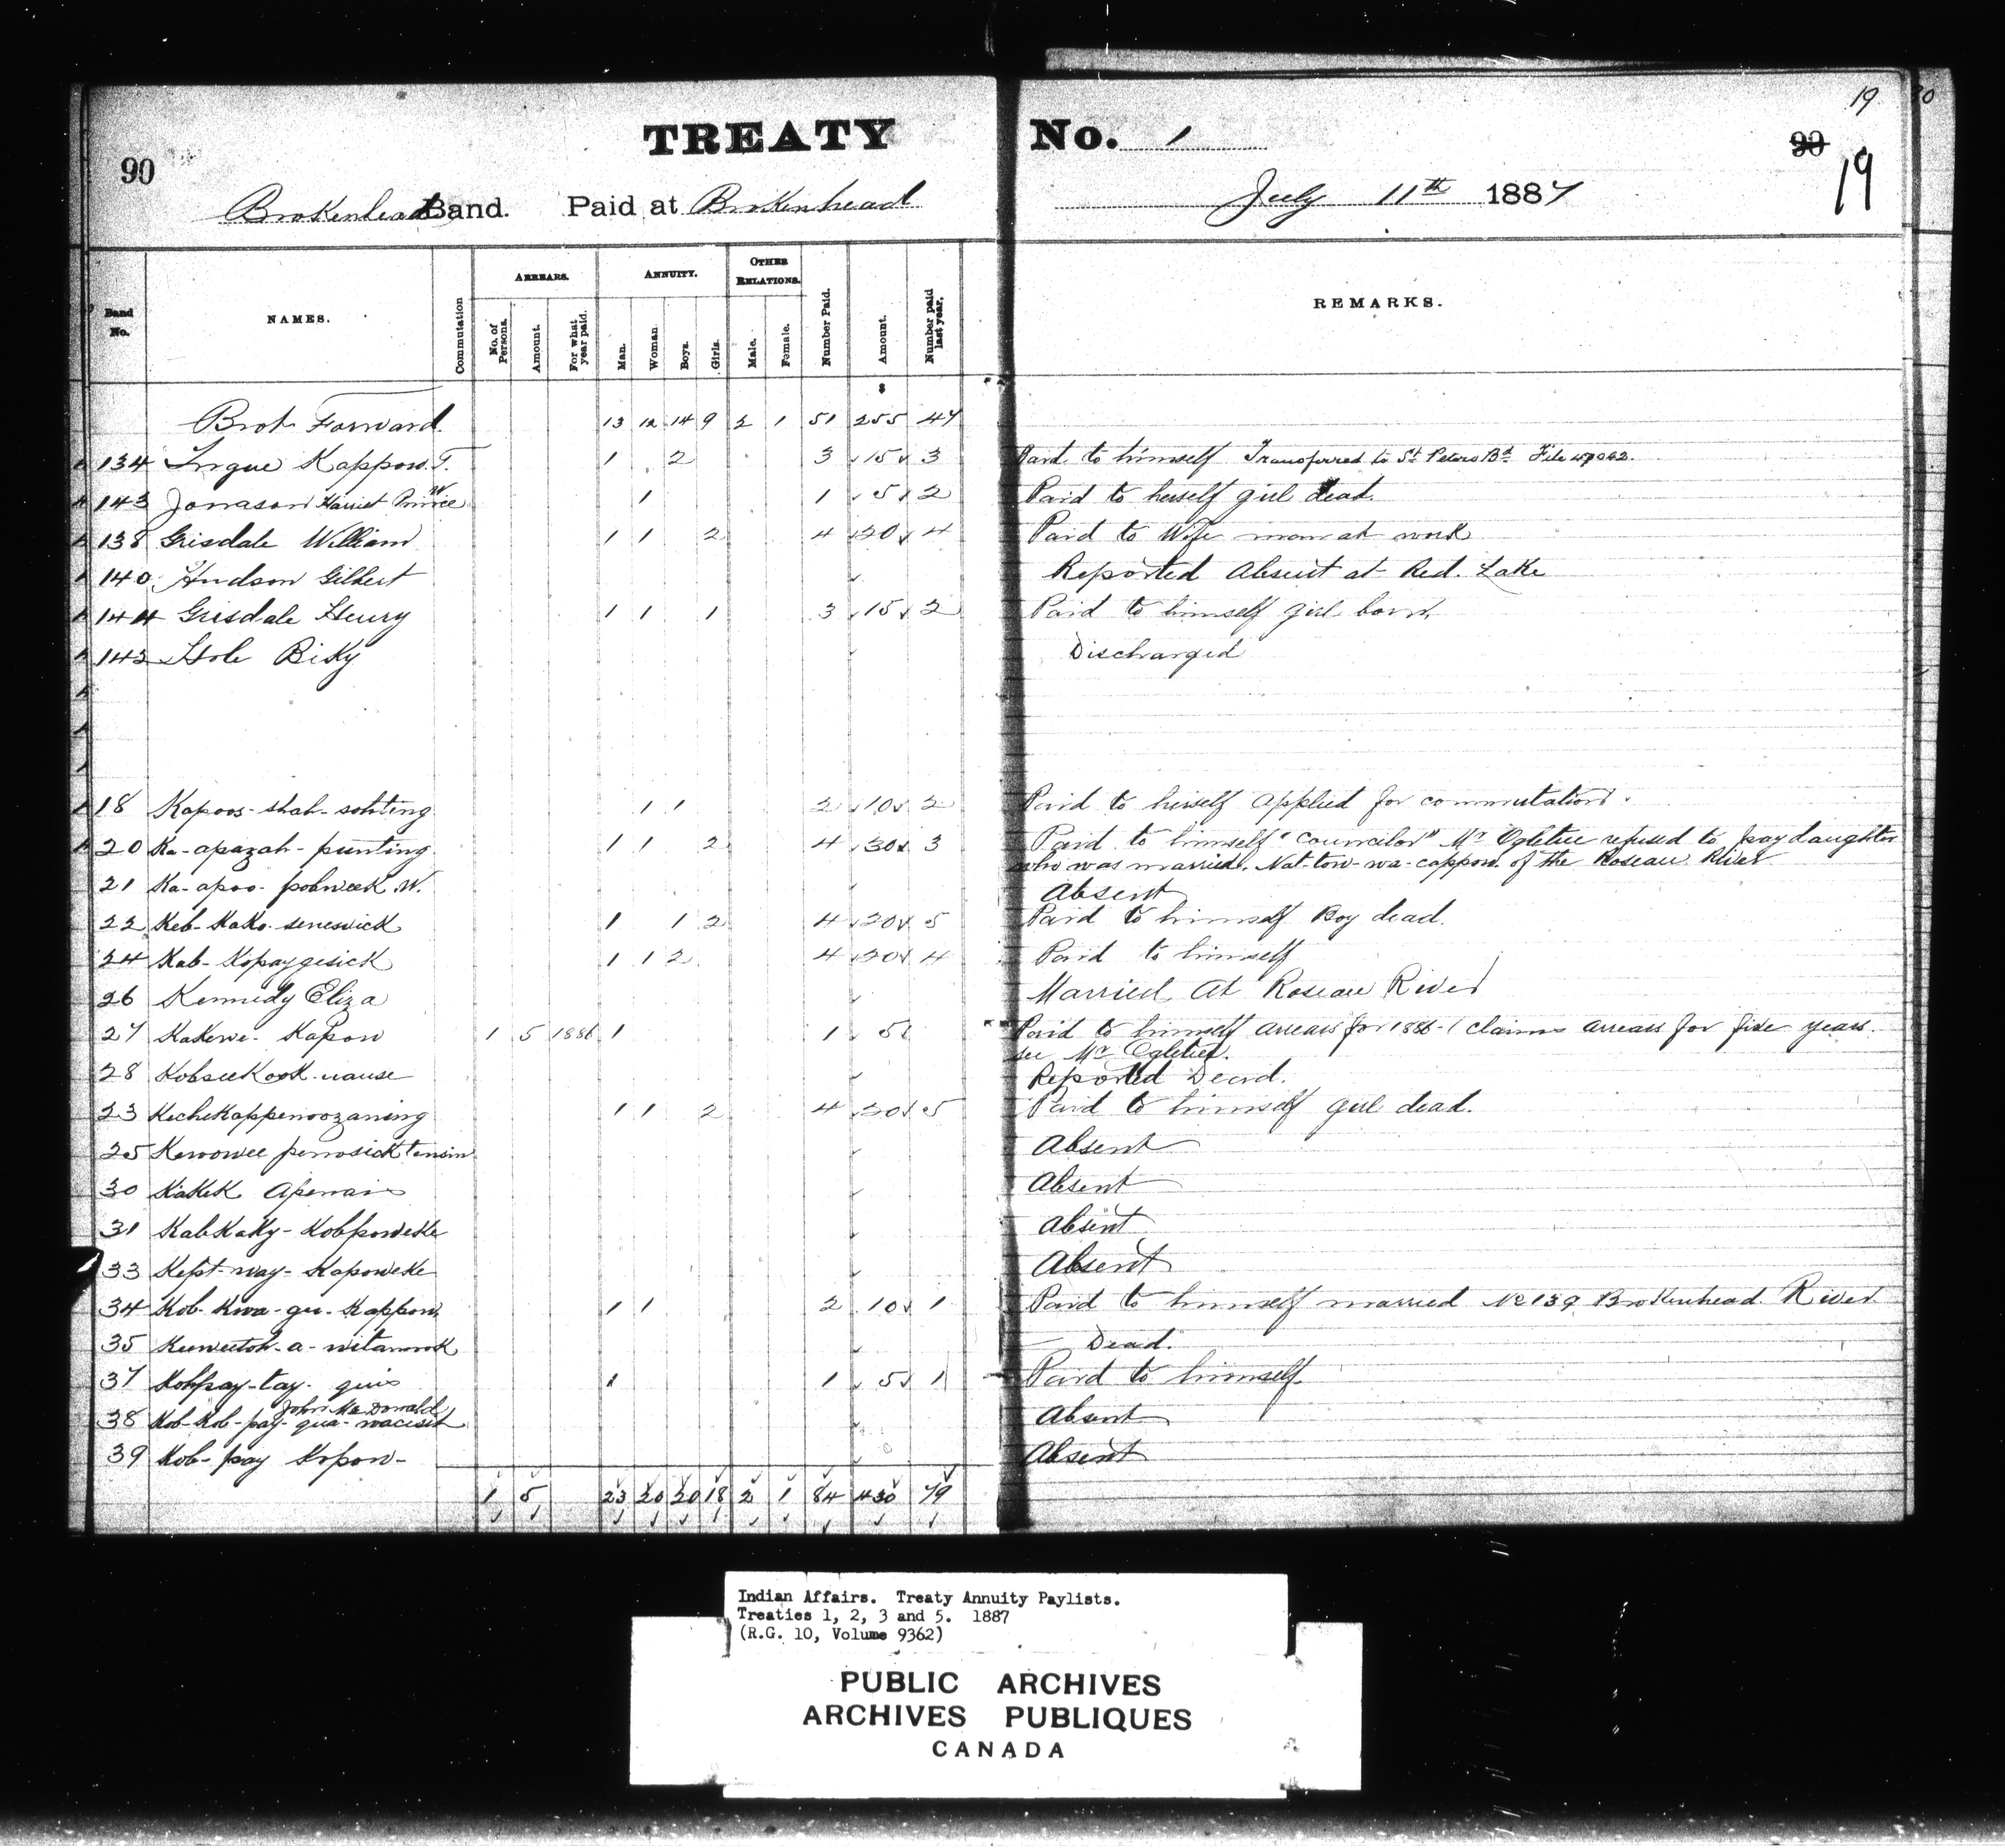 19
TREATY No. 1
90
90
19
Brokenhead Band. Paid at Brokenhead July 11th 1887
Band No. NAMES. Commutation ARREARS. No. of Persons. Amount. For what year paid. ANNUITY. Man. Woman. Boys. Girls. OTHER RELATIONS. Male. Female. Number Paid. Amount. Number paid last year. REMARKS.
$
Brot Forward. 13 12 14 9 2 1 51 255 47
134 Kappow. T. 1 2 3 15 3 Paid to himself Transferred to St Peters Bd File
143 Jonason Harriet Prince W 1 1 5 2 Paid to herself girl dead.
138 Grisdale William 1 1 2 4 20 4 Paid to Wife man at work
140 Hudson Gilbert Reported Absent at Red. Lake
144 Grisdale Henry 1 1 1 3 15 2 Paid to himself girl born.
142 Hole Biky Discharged
18 Kapoos-shah-sohting 1 1 2 10 2 Paid to herself applied for commutation.
20 Ka-apazah-punting 1 1 2 4 30 3 Paid to himself "Councilor" Mr Ogletree refused to pay daughter
who was married. Nat-tow-wa-cappow of the Roseau River
21 Ka-apoo-pohweek W. Absent
22 Keb-Kako-seneswick 1 1 2 4 20 5 Paid to himself Boy dead.
24 Kab-Kopaygesick 1 1 2 4 20 4 Paid to himself
26 Kennedy Eliza Married at Roseau River
27 Kakewe-Kapow 1 5 1886 1 1 5 Paid to himself arrears for 1886-(claims arrears for five years.
see Mr Ogletree.
28 KobseeKook-nause Reported Dead.
23 Kechekappenoozaning 1 1 2 4 20 5 Paid to himself girl dead.
25 Kewowee penosick tensin Absent
30 Kakek Apenais Absent
31 Kabkaky-Kobpoweke Absent
33 Kept-way-Kapoweke Absent
34 Kob-Kwa-gu-Kappow 1 1 2 10 1 Paid to himself married No 139 Brokenhead River
35 Keewetoh-a-witamook Dead.
37 Kohpay-tay-quis 1 1 5 1 Paid to himself.
John McDonald
38 Kob-Kob-pay-qua-wacisit Absent
39 Kob-pay Kopow- Absent
1 5 23 20 20 18 2 1 84 430 79
Indian Affairs. Treaty Annuity Paylists.
Treaties 1, 2, 3 and 5. 1887
(R.G. 10, Volume 9362)
PUBLIC ARCHIVES
ARCHIVES PUBLIQUES
CANADA